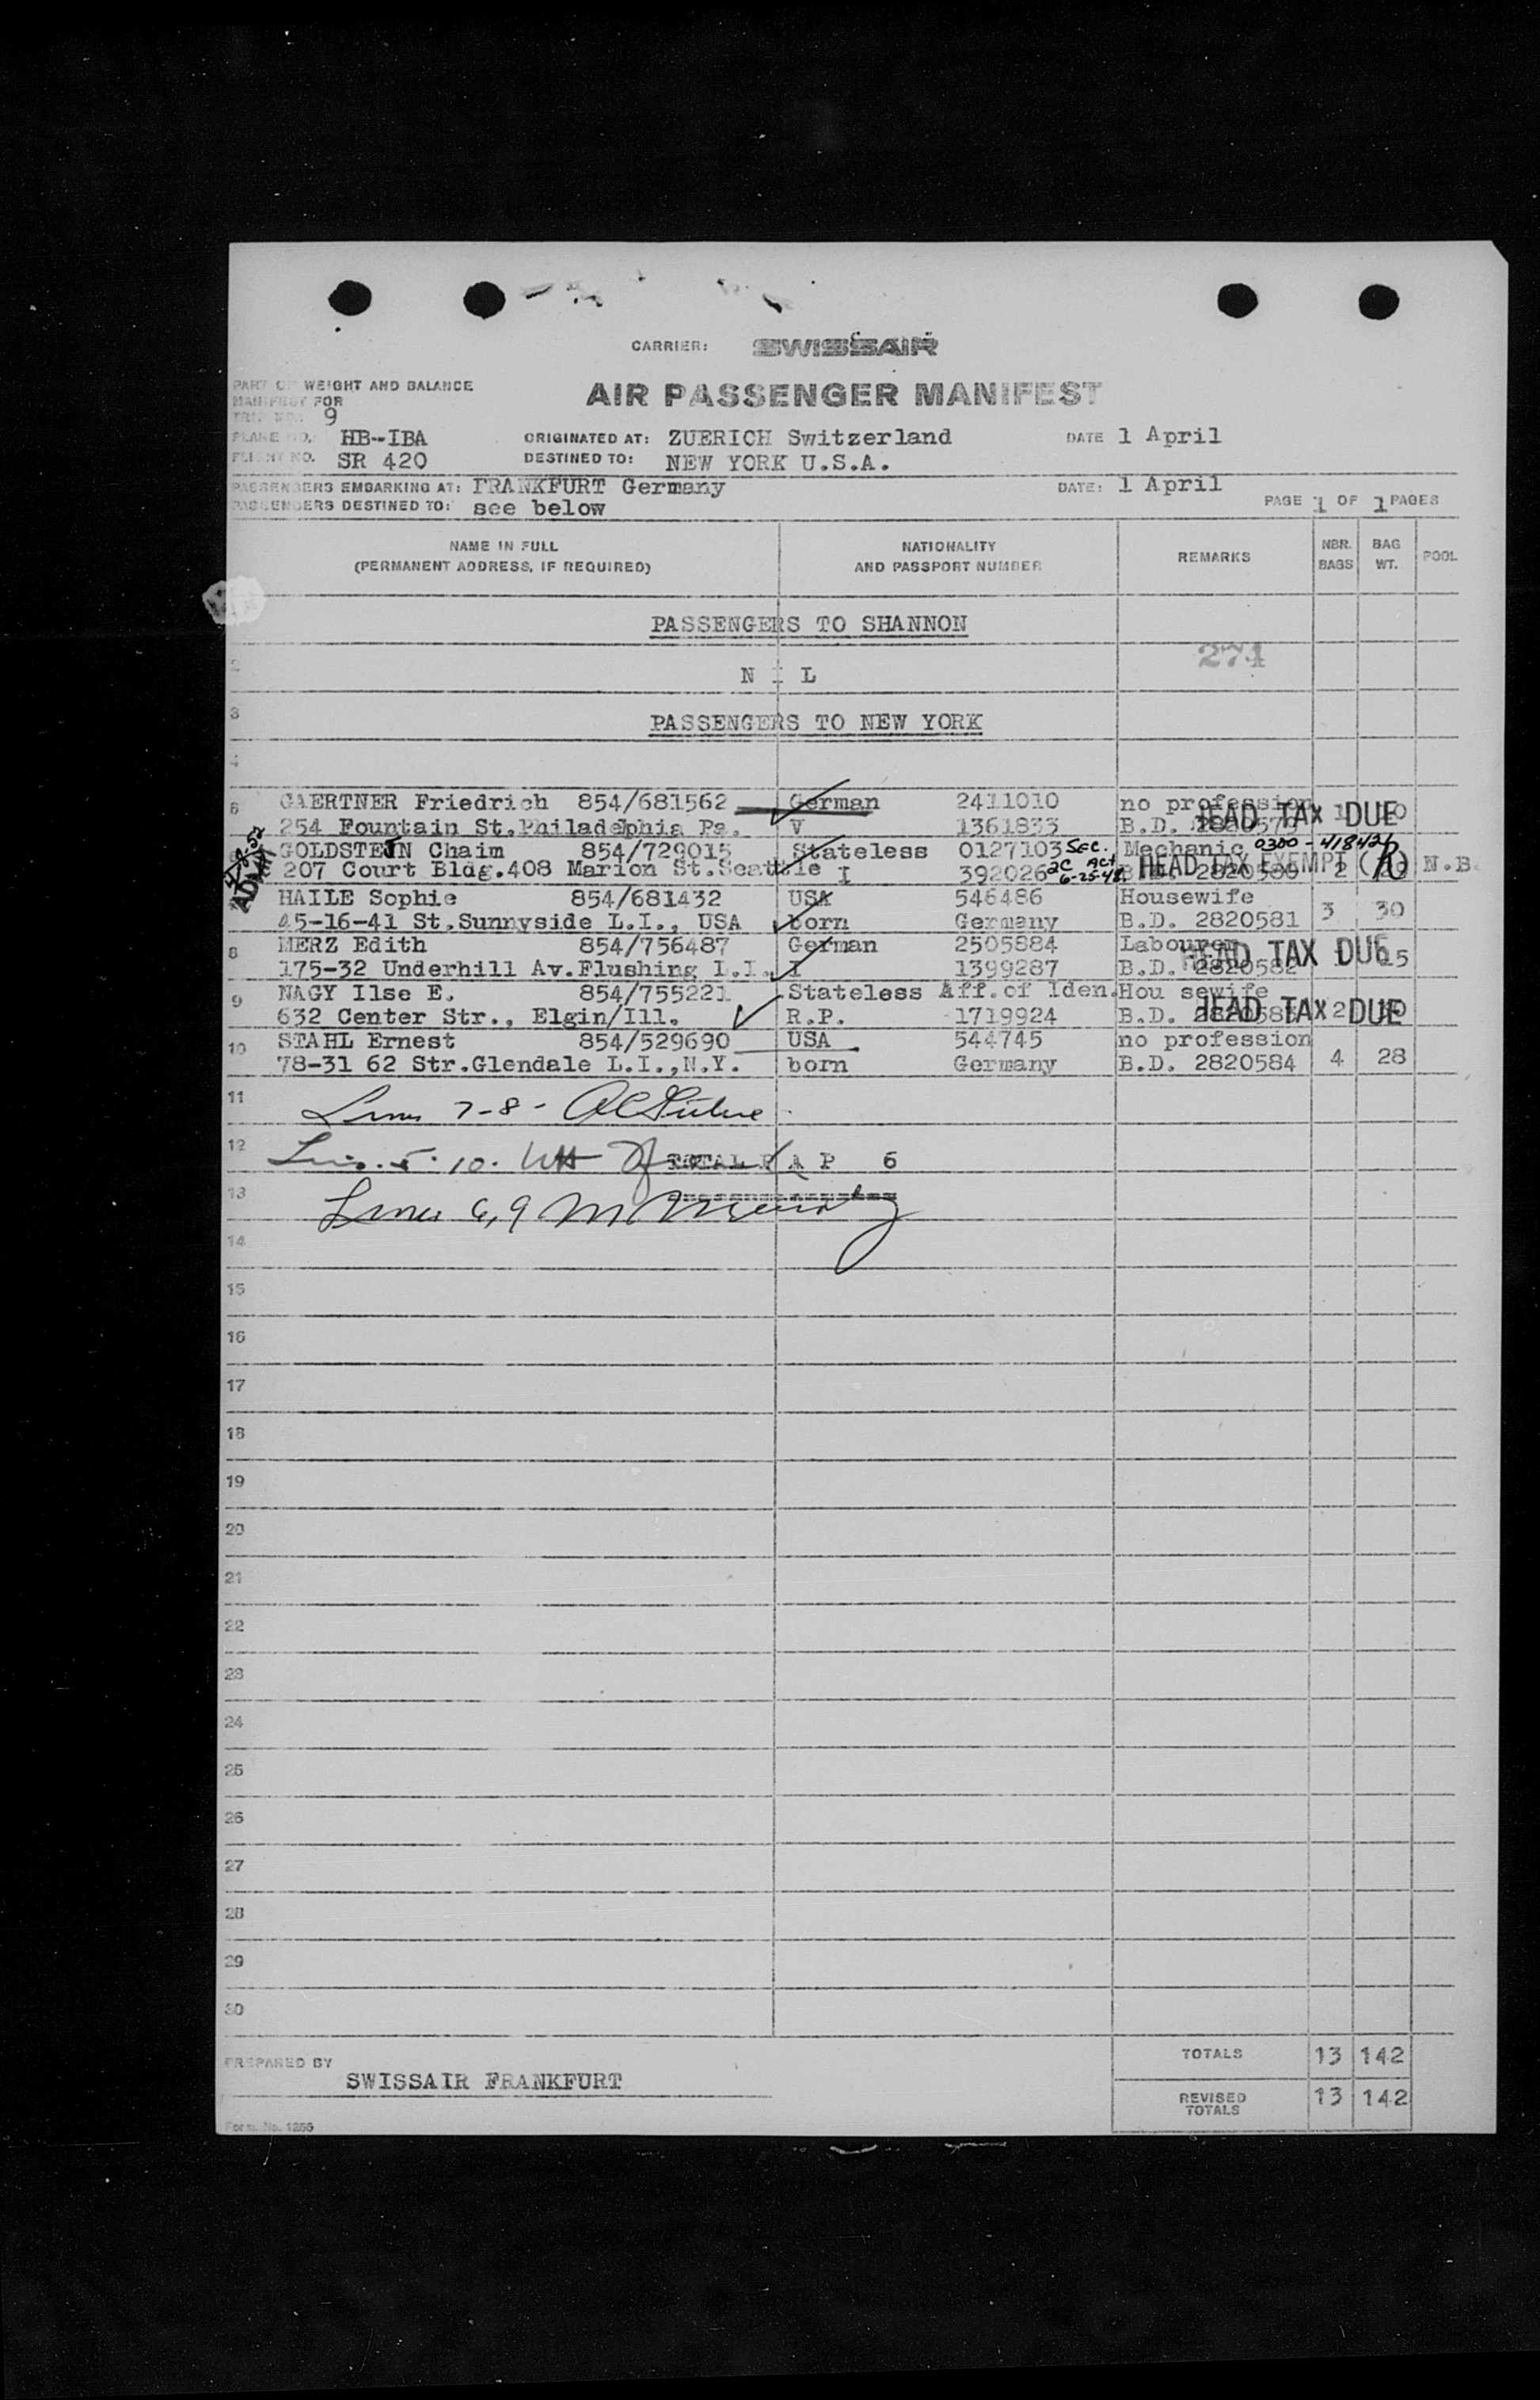 CARRIER: SWISSAIR
PART OF WEIGHT AND BALANCE
MANIFEST FOR
AIR PASSENGER MANIFEST
TRIP NO. 9
PLANE NO. HB-IBA ORIGINATED AT: ZUERICH Switzerland DATE 1 April
FLIGHT NO. SR 420 DESTINED TO: NEW YORK U.S.A.
PASSENGERS EMBARKING AT: FRANKFURT Germany DATE: 1 April
PASSENGERS DESTINED TO: see below PAGE 1 OF 1 PAGES
NAME IN FULL NATIONALITY REMARKS NBR. BAG POOL
(PERMANENT ADDRESS, IF REQUIRED) AND PASSPORT NUMBER BAGS WT.
PASSENGERS TO SHANNON
271
2 N I L
3 PASSENGERS TO NEW YORK
4
GAERTNER Friedrich 854/681562 German 2411010 no profession
254 Fountain St.Philadelphia Pa. V 1361833 B.D. HEAD TAX DUE
GOLDSTEIN Chaim 854/729015 Stateless 0127103 Sec. Mechanic 0300-418426
207 Court Bldg.408 Marion St.Seattle I 392026 2C Act 6-25-48 HEAD TAX EXEMPT N.B.
HAILE Sophie 854/681432 USA 546486 Housewife
45-16-41 St.Sunnyside L.I., USA born Germany B.D. 2820581 3 30
8 MERZ Edith 854/756487 German 2505884 Labourer
175-32 Underhill Av.Flushing L.I. I 1399287 B.D. 2820582 HEAD TAX DUE
9 NAGY Ilse E. 854/755221 Stateless Aff.of Iden. Hou sewife
632 Center Str., Elgin/Ill. R.P. 1719924 B.D. HEAD TAX DUE 2
10 STAHL Ernest 854/529690 USA 544745 no profession
78-31 62 Str.Glendale L.I.,N.Y. born Germany B.D. 2820584 4 28
11 Lines 7-8-
12 5-10. TOTAL P A P 6
13 Lines 6,9
14
15
16
17
18
19
20
21
22
23
24
25
26
27
28
29
30
PREPARED BY TOTALS 13 142
SWISSAIR FRANKFURT
REVISED TOTALS 13 142
Form No. 1266